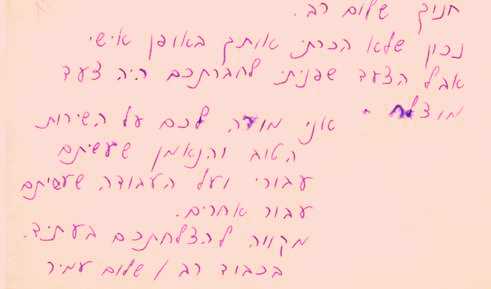 חנוך שלום רב.
נכון שלא הכרתי אותך באופן אישי
אבל הצעד שפניתי לחברתכם היה צעד
מוצלח - אני מודה לכם על השירות
הטוב והנאמן שעשיתם
עבורי ועל העבודה שעשיתם
עבור אחרים.
מקווה להצלחתכם בעתיד.
בכבוד רב / שלום עמיר